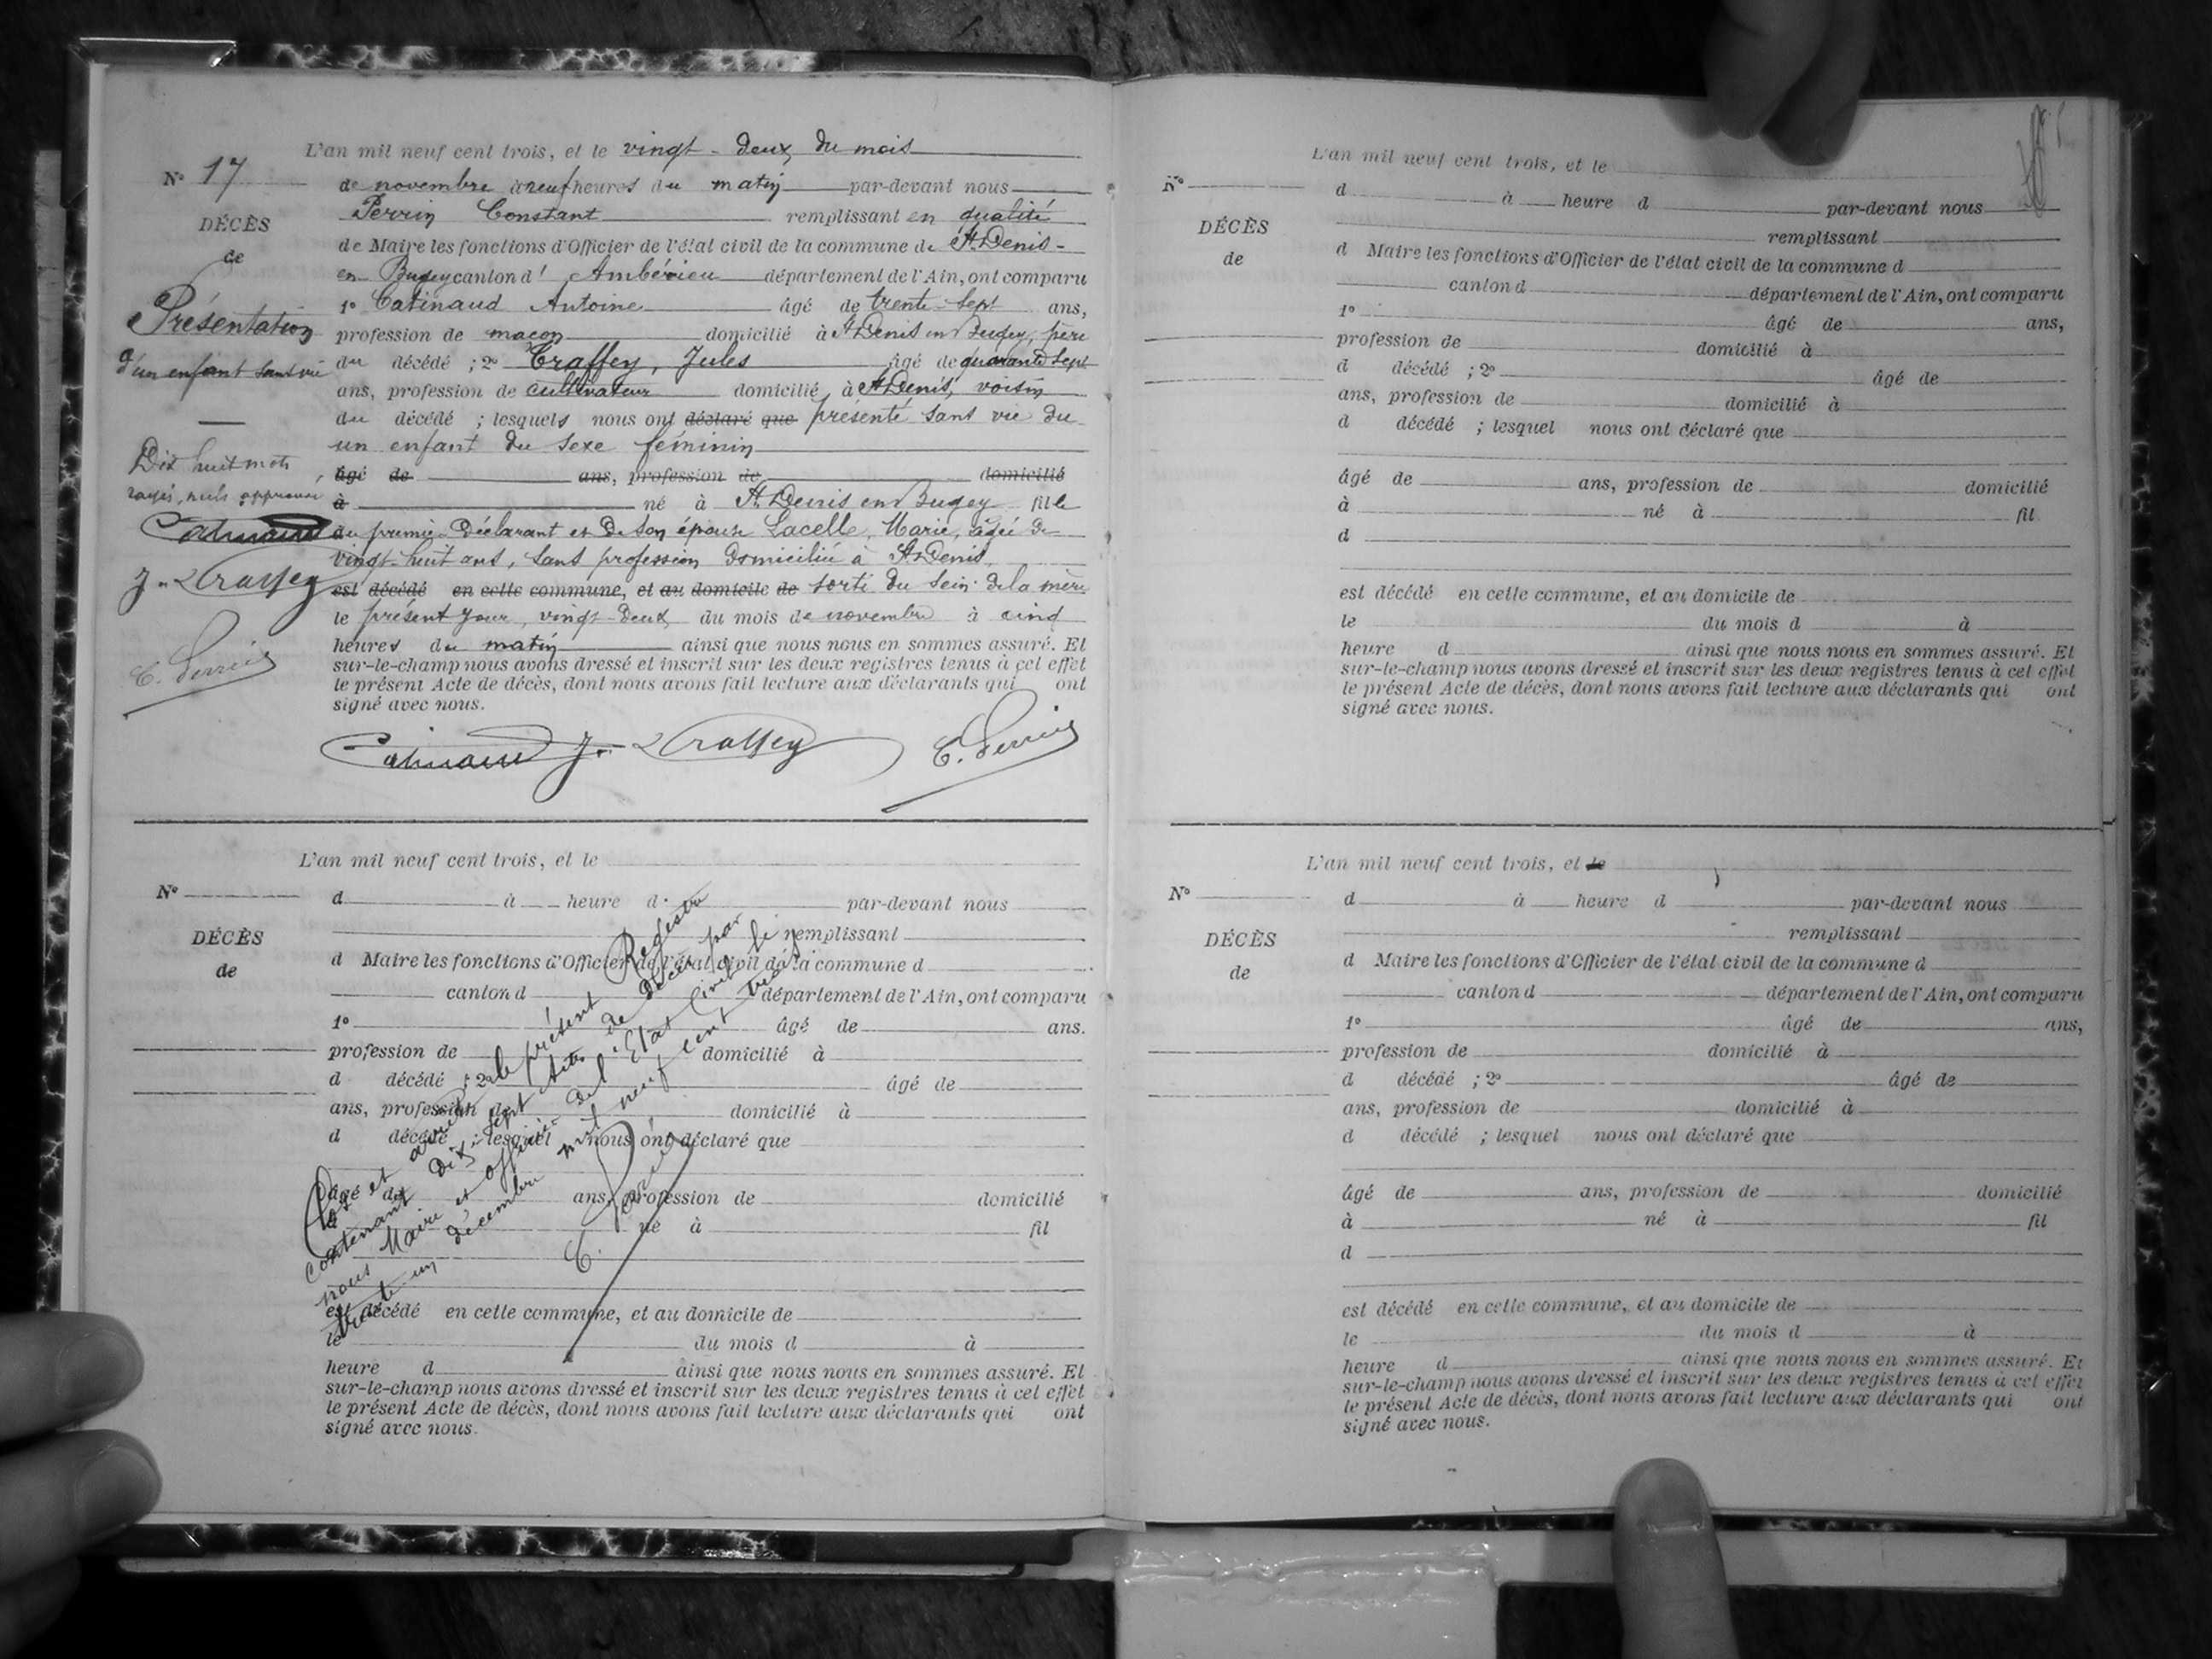 L'an mil neuf cent trois, et le vingt-deux du mois
N° 17
de novembre à neuf heures du matin par-devant nous
Perrin Constant remplissant en qualité
DÉCÈS
de Maire les fonctions d'Officier de l'état civil de la commune de St Denis-
de
en Bugey canton d' Ambérieu département de l'Ain, ont comparu
1° Catinaud Antoine âgé de trente-sept ans,
Présentation
profession de maçon domicilié à St Denis en Bugey, père
d'un enfant sans vie
du décédé ; 2° Traffey, Jules âgé de quarante sept
ans, profession de cultivateur domicilié à St Denis, voisin
du décédé ; lesquels nous ont déclaré que présenté sans vie du
un enfant du sexe féminin
Dix huit mots
âgé de ans, profession de domicilié
rayés nuls approuvés
à né à St Denis en Bugey fille
Catinaud
du premier Déclarant et De Son épouse Lacelle, Marie, âgée de
vingt-huit ans, sans profession Domiciliée à St Denis,
J. Traffey
est décédé en cette commune, et au domicile de sorti du sein de la mère
le présent jour, vingt-deux du mois de novembre à cinq
heures du matin ainsi que nous nous en sommes assuré. Et
C. Perrin
sur-le-champ nous avons dressé et inscrit sur les deux registres tenus à cet effet
le présent Acte de décès, dont nous avons fait lecture aux déclarants qui ont
signé avec nous.
Catinaud J. Traffey C. Perrin
L'an mil neuf cent trois, et le
N°
d à heure d par-devant nous
remplissant
DÉCÈS
d Maire les fonctions d'Officier de l'état civil de la commune d
de
canton d département de l'Ain, ont comparu
1° âgé de ans.
profession de domicilié à
d décédé ; 2° âgé de
ans, profession de domicilié à
d décédé ; lesquel nous ont déclaré que
âgé de ans, profession de domicilié
à né à fil
d
est décédé en cette commune, et au domicile de
le du mois d à
heure d ainsi que nous nous en sommes assuré. Et
sur-le-champ nous avons dressé et inscrit sur les deux registres tenus à cet effet
le présent Acte de décès, dont nous avons fait lecture aux déclarants qui ont
signé avec nous.
Clos et arrêté le présent Registre
contenant dix-sept actes de décès par
nous Maire et officier de l'Etat Civil le
trente un décembre mil neuf cent trois
C. Perrin
L'an mil neuf cent trois, et le
N°
d à heure d par-devant nous
remplissant
DÉCÈS
d Maire les fonctions d'Officier de l'état civil de la commune d
de
canton d département de l'Ain, ont comparu
1° âgé de ans,
profession de domicilié à
d décédé ; 2° âgé de
ans, profession de domicilié à
d décédé ; lesquel nous ont déclaré que
âgé de ans, profession de domicilié
à né à fil
d
est décédé en cette commune, et au domicile de
le du mois d à
heure d ainsi que nous nous en sommes assuré. Et
sur-le-champ nous avons dressé et inscrit sur les deux registres tenus à cet effet
le présent Acte de décès, dont nous avons fait lecture aux déclarants qui ont
signé avec nous.
L'an mil neuf cent trois, et le
N°
d à heure d par-devant nous
remplissant
DÉCÈS
d Maire les fonctions d'Officier de l'état civil de la commune d
de
canton d département de l'Ain, ont comparu
1° âgé de ans,
profession de domicilié à
d décédé ; 2° âgé de
ans, profession de domicilié à
d décédé ; lesquel nous ont déclaré que
âgé de ans, profession de domicilié
à né à fil
d
est décédé en cette commune, et au domicile de
le du mois d à
heure d ainsi que nous nous en sommes assuré. Et
sur-le-champ nous avons dressé et inscrit sur les deux registres tenus à cet effet
le présent Acte de décès, dont nous avons fait lecture aux déclarants qui ont
signé avec nous.